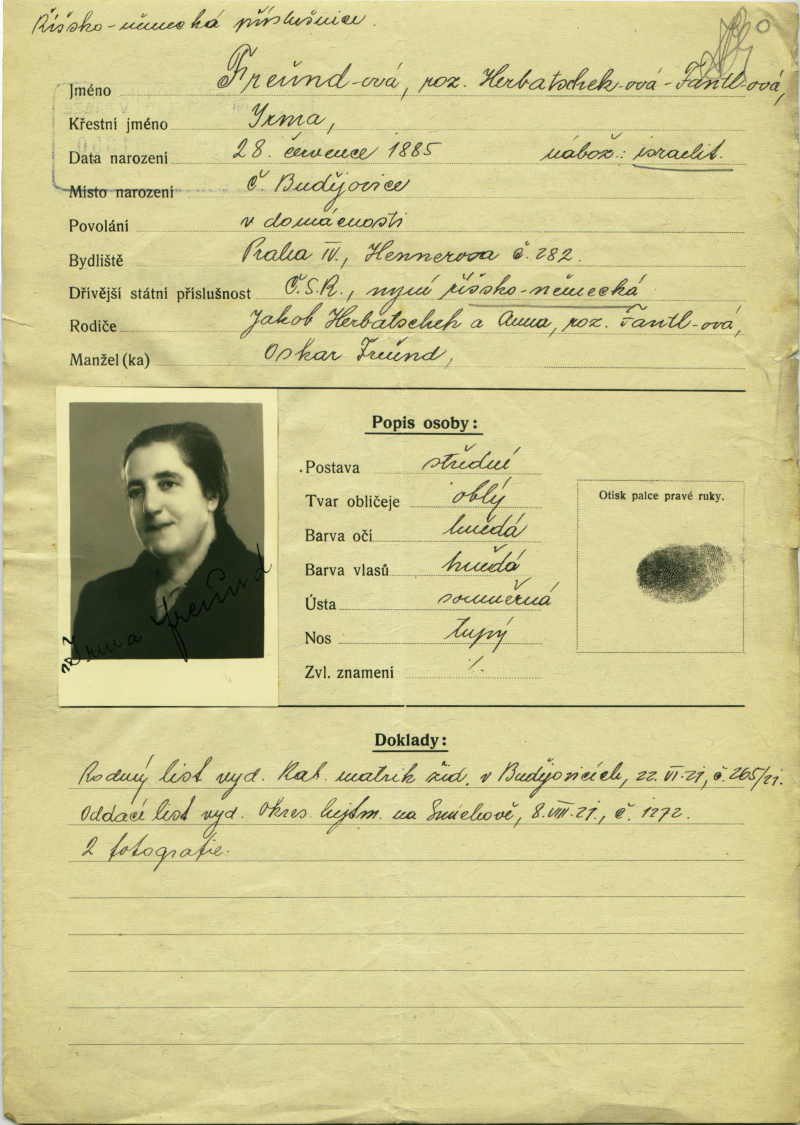 Říšsko-německá příslušnice.
Jméno Freund-ová, roz. Herbatschek-ová-Fantl-ová,
Křestní jméno Irma,
Data narození 28. července 1885 nábož.: israelit.
Místo narození Č. Budějovice
Povolání v domácnosti
Bydliště Praha IV., Hennerova č. 282.
Dřívější státní příslušnost Č.S.R., nyní říšsko-německá
Rodiče Jakob Herbatschek a Anna, roz. Fantl-ová,
Manžel(ka) Oskar Freund,
Popis osoby:
Postava střední
Tvar obličeje oblý
Barva očí hnědá
Barva vlasů hnědá
Ústa souměrná
Nos tupý
Zvl. znamení ./.
Otisk palce pravé ruky.
Irma Freund
Doklady:
Rodný list vyd. Rab. matrik žid. v Budějovicích, 22.VI.21, č. 265/21.
Oddací list vyd. Okres. hejtm. na Smíchově, 8.VIII.21., č. 1272.
2 fotografie.